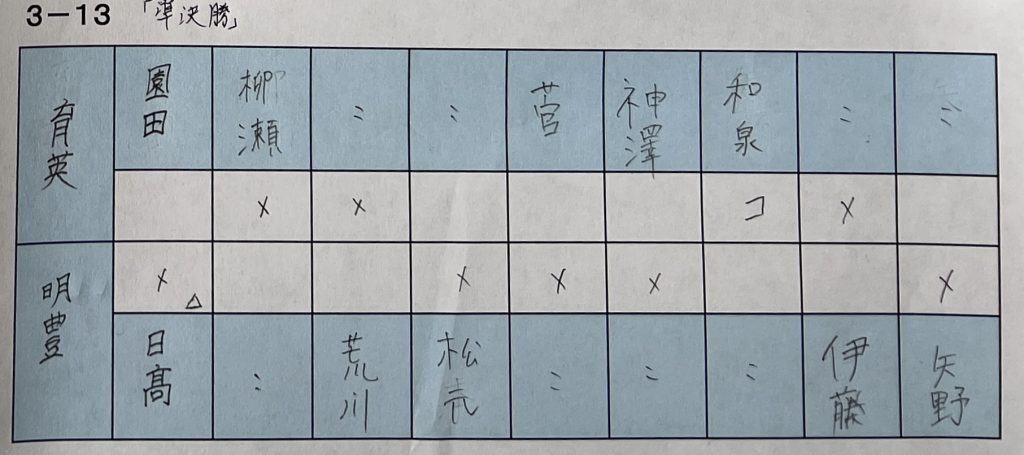 3-13 「準決勝」
育英 園田 柳瀬 〃 〃 菅 神澤 和泉 〃 〃
× × コ ×
明豊 × △ × × × ×
日髙 〃 荒川 松売 〃 〃 〃 伊藤 矢野